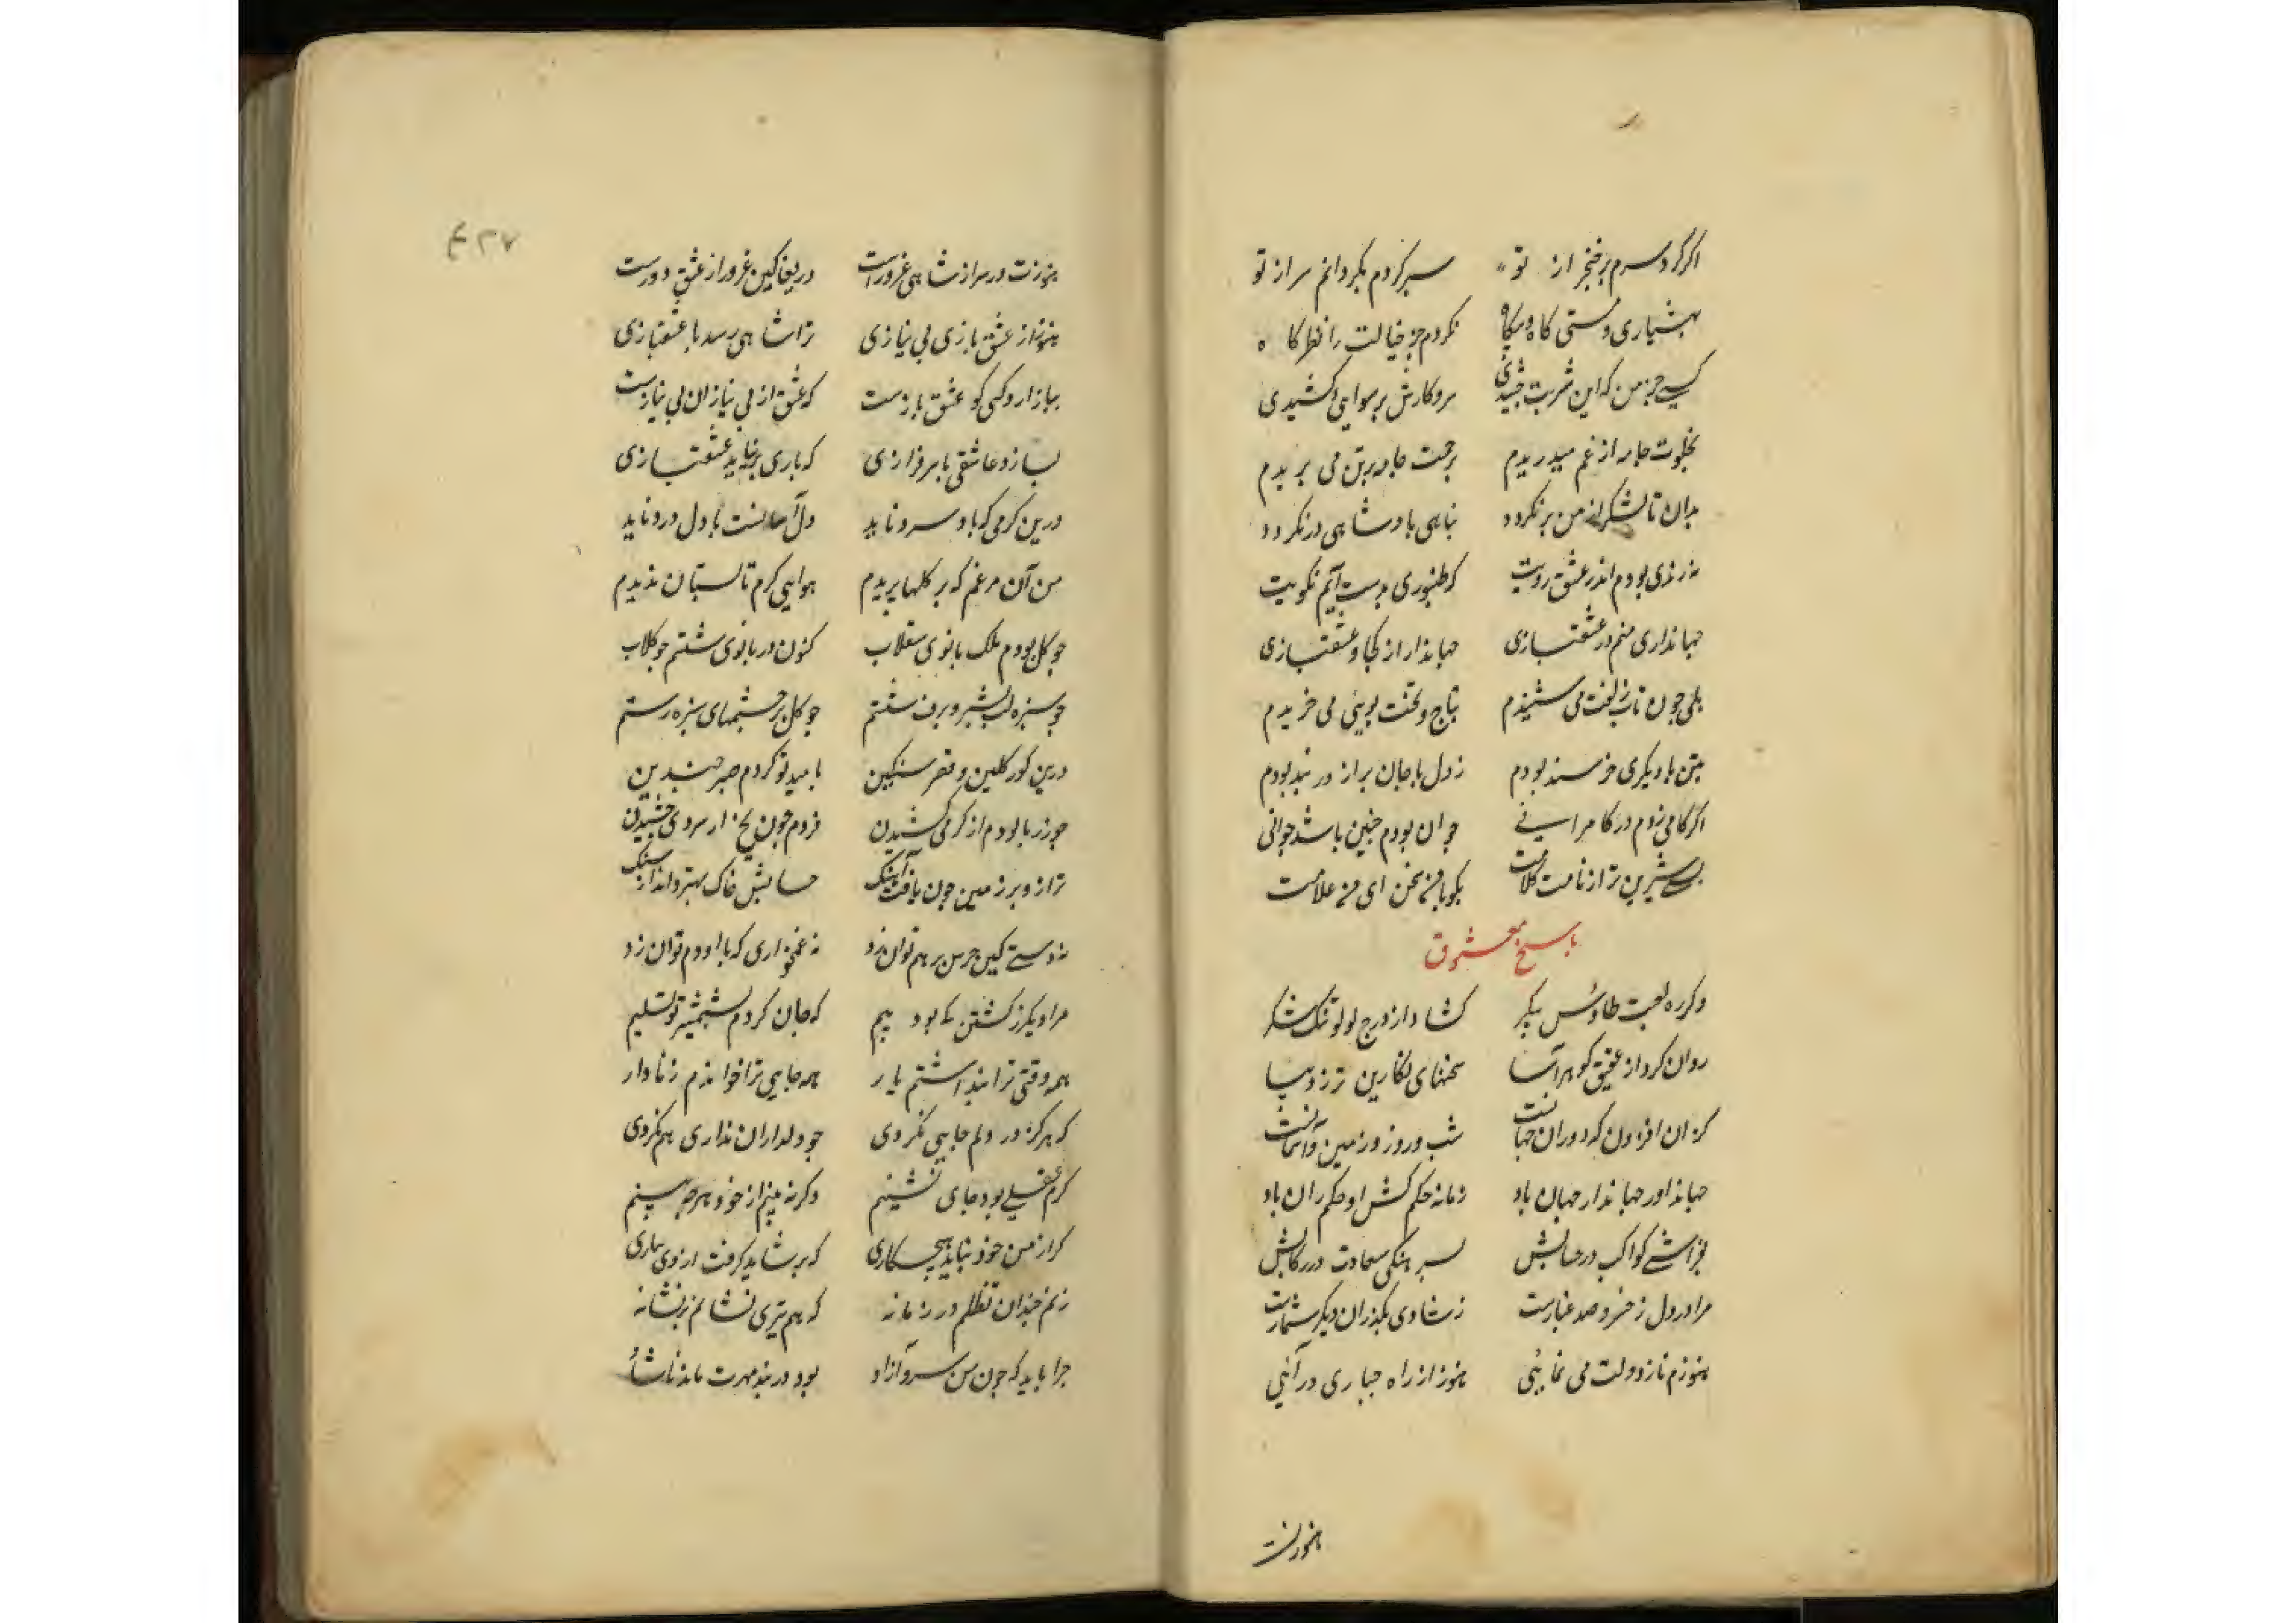 اکر کردد سرم بر خنجر از تو سر کردم بکردانم سر از تو
بهشیاری و مستی کاه و بیکاه نکردم جز خیالت را نظر کاه
کسی جز من که این شربت چشیدی سر و کارش برسوایی کشیدی
بخلوت جامه از غم میدریدم برحمت جامه بر تن می بریدم
بدان تا لشکر از من برنکردد تباهی بادشاهی در نکردد
نه رندی بودم اندر عشق رویت که طنبوری بدست آیم بکویت
جهانداری منم در عشقبازی جهاندار از کجا و عشقبازی
بلی چون تاب زلفت می شنیدم بتاج و تخت بویی می خریدم
بتن با دیکری خرسند بودم ز دل با جان براز در بند بودم
اکر کامی زدم در کامرانی جوان بودم چنین باشد جوانی
بسی شیرین تر از نامت کلامت بکو با من سخن ای من غلامت
پاسخ معشوق
دکر ره لعبت طاوس پیکر کشاد از درج لولو تنک شکر
روان کرد از عقیق کوهرآسا سخنهای نکارین تر ز دیبا
کزان افزون که دوران جهانست شب و روز و زمین و آسمانست
جهانداور جهاندار جهان باد زمانه حکم کش او حکمران باد
بفراشی کواکب در جنابش بسرهنکی سعادت در رکابش
مرا در دل ز خسرو صد غبارست ز شادی بکذران دیکر شمارست
هنوزم ناز دولت می نمایی هنوز از راه جباری درآئی
هنوزت
۴۲۷
هنوزت در سر از شاهی غرورست دریغا کین غرور از عشق دورست
هنوز از عشق بازی بی نیازی ترا شاهی رسد یا عشقبازی
ببازار وکسی کو عشق بازست که عشق از بی نیازان بی نیازست
نسازد عاشقی با سرفرازی که بازی برنتابد عشقبازی
درین کرمی که باد سرد ناید دل آسانست با دل درد ناید
من آن مرغم که بر کلها پریدم هوایی کرم تابستان ندیدم
چو کل بودم ملک بانوی سقلاب کنون در بانوی شستم چو کلاب
چو سبزه لب بشیر و برف شستم چو کل بر چشمهای سبزه رستم
درین کور کلین و قصر سنکین بامید تو کردم صبر چندین
چو زر پالودم از کرمی کشیدن فزدم چون یخ از سردی چشیدن
ترازو بر زمین چون یافت آهنک حسابش خاک بهتر داند از سنک
نه دستی کین جرس بر هم توان زد نه غمخواری که با او دم توان زد
مرا دیکر ز کشتن کی بود بیم که جان کردم بشمشیر تو تسلیم
همه وقتی ترا پنداشتم یار همه جایی ترا خواندم وفادار
که هرکز در دلم جایی نکردی چو دلداران مداری هم نکردی
کرم عقلی بود جای نشینم وکر نه بینم از خود هر چه بینم
کر از من خود نیاید هیچ کاری که بر شاید کرفت از وی شماری
زنم چندان تظلم در زمانه که هم تیری نشانم بر نشانه
چرا باید که چون من سرو آزاد بود در بند مهرت مانده ناشاد